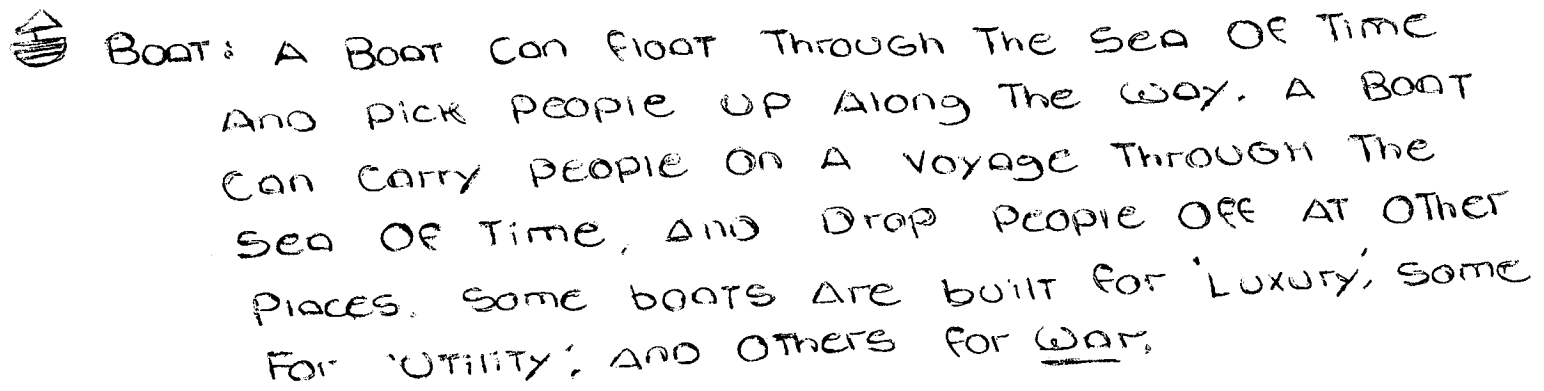 Boat: A Boat Can float Through The Sea Of Time
And pick people up Along The way. A Boat
Can Carry people On A Voyage Through The
Sea Of Time, And Drop People Off At Other
Places. Some boats Are built for 'Luxury', Some
For 'Utility', And Others for war.